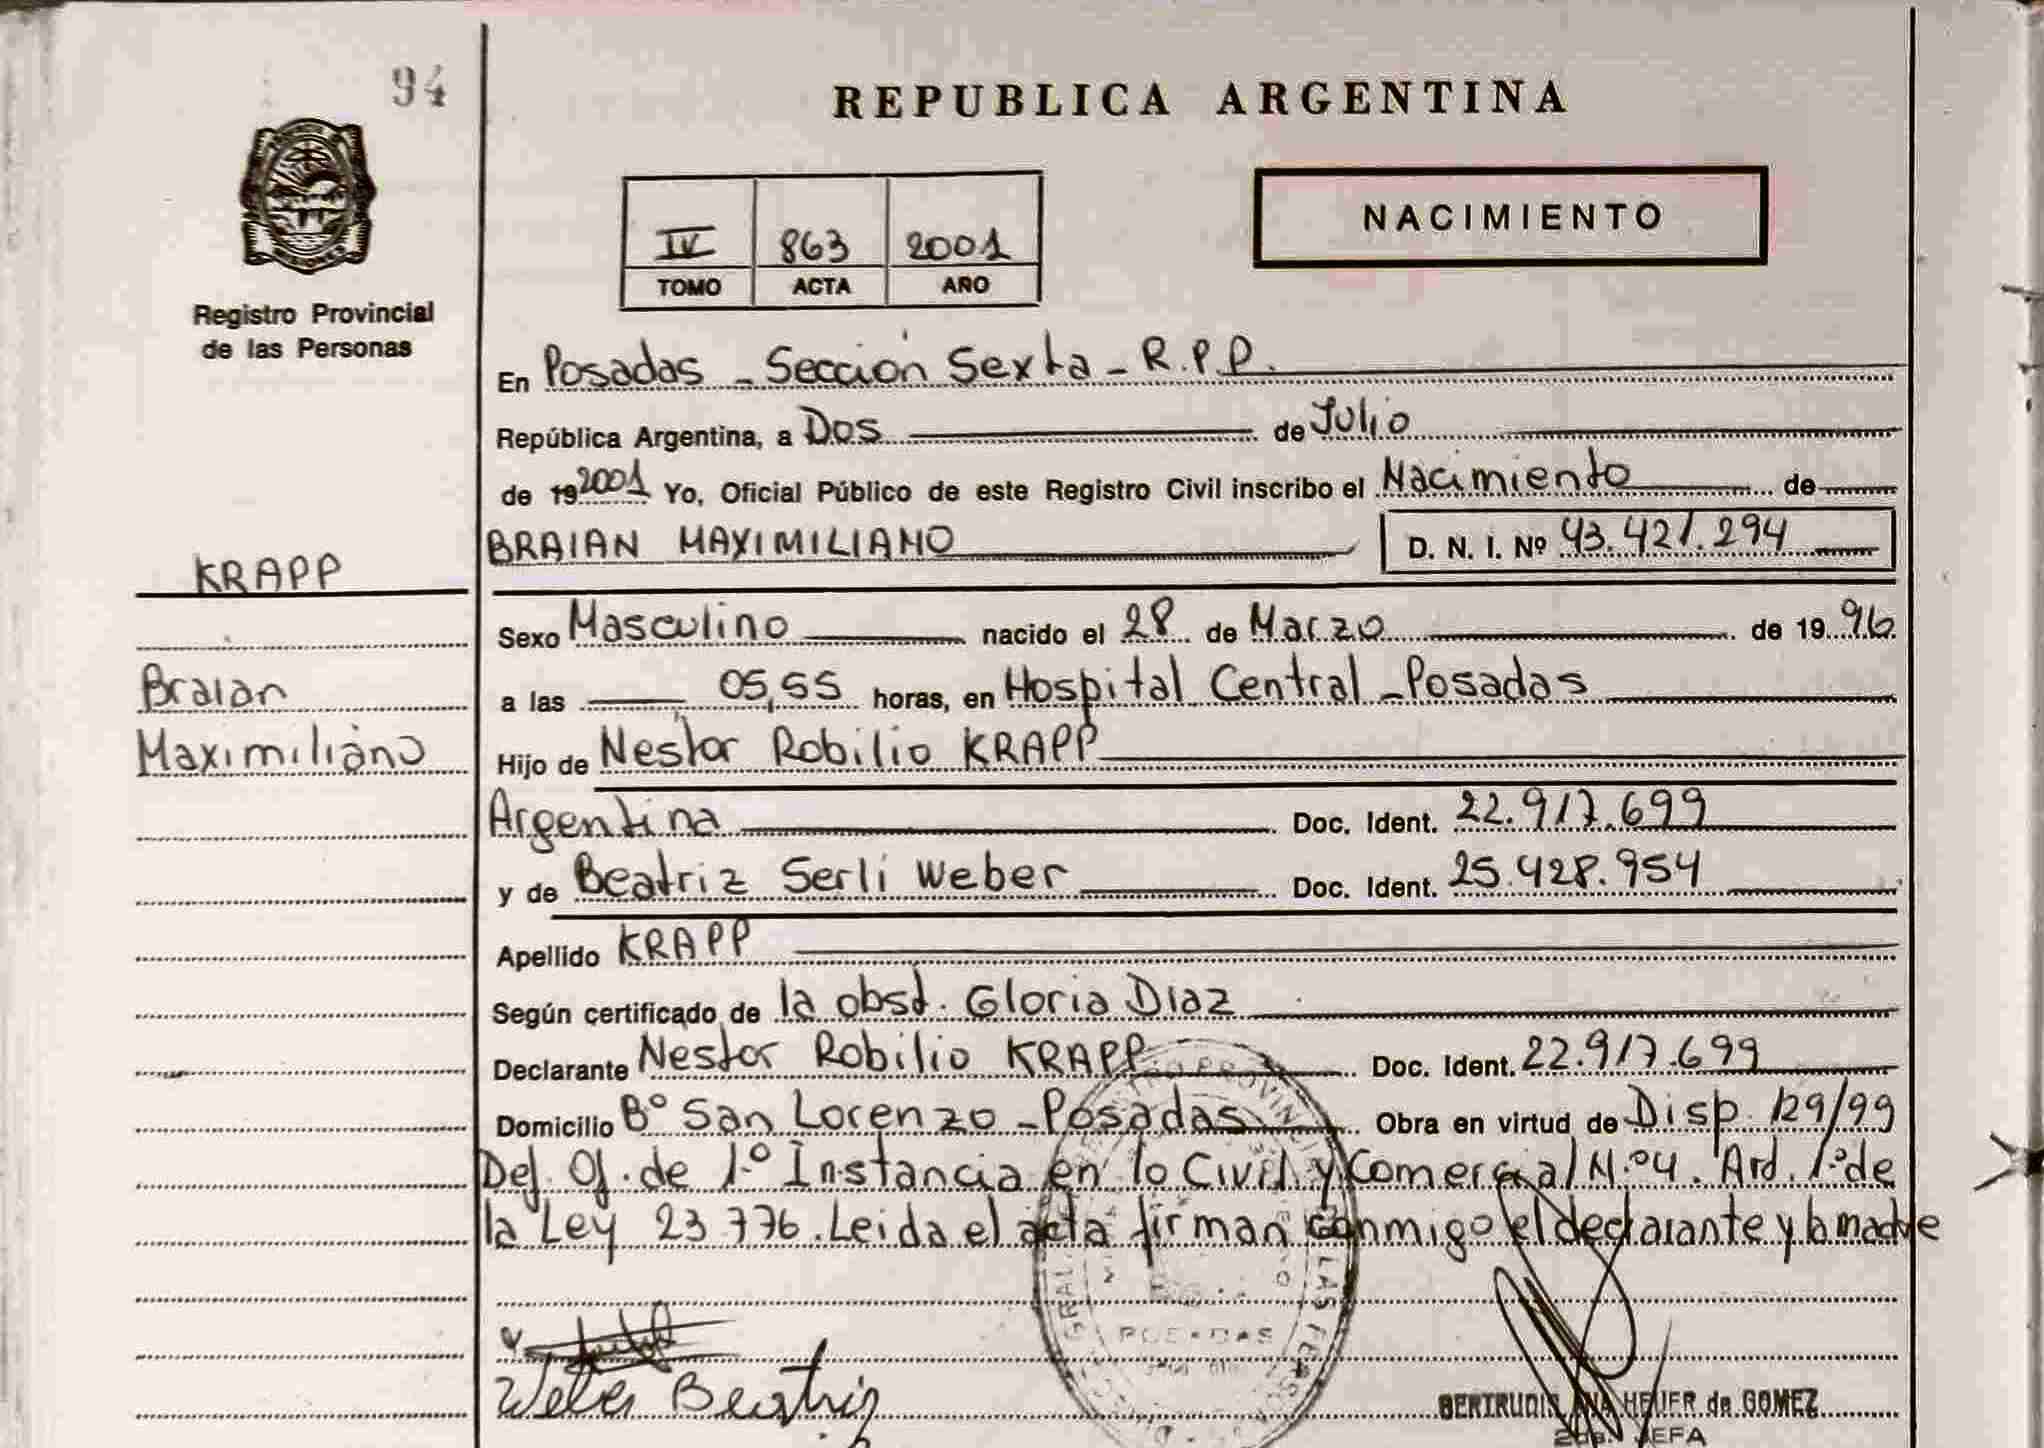 94
REPUBLICA ARGENTINA
NACIMIENTO
IV 863 2001
TOMO ACTA AÑO
Registro Provincial
de las Personas
En Posadas - Sección Sexta - R.P.P.
República Argentina, a Dos de Julio
de 19 2001 Yo, Oficial Público de este Registro Civil inscribo el Nacimiento de
BRAIAN MAXIMILIANO D. N. I. Nº 43.421.294
KRAPP
Sexo Masculino nacido el 28 de Marzo de 19 96
Braian
a las 05,55 horas, en Hospital Central - Posadas
Maximiliano
Hijo de Nestor Robilio KRAPP
Argentina Doc. Ident. 22.917.699
y de Beatriz Serli Weber Doc. Ident. 25.428.954
Apellido KRAPP
Según certificado de la obst. Gloria Diaz
Declarante Nestor Robilio KRAPP Doc. Ident. 22.917.699
Domicilio Bº San Lorenzo - Posadas Obra en virtud de Disp. 129/99
Def. Of. de 1.º Instancia en lo Civil y Comercial N.º 4. Art. 1.º de
la Ley 23.776. Leida el acta firman conmigo el declarante y la madre
POSADAS
Weber Beatriz
GERTRUDIS ANA HEUER de GOMEZ
JEFA